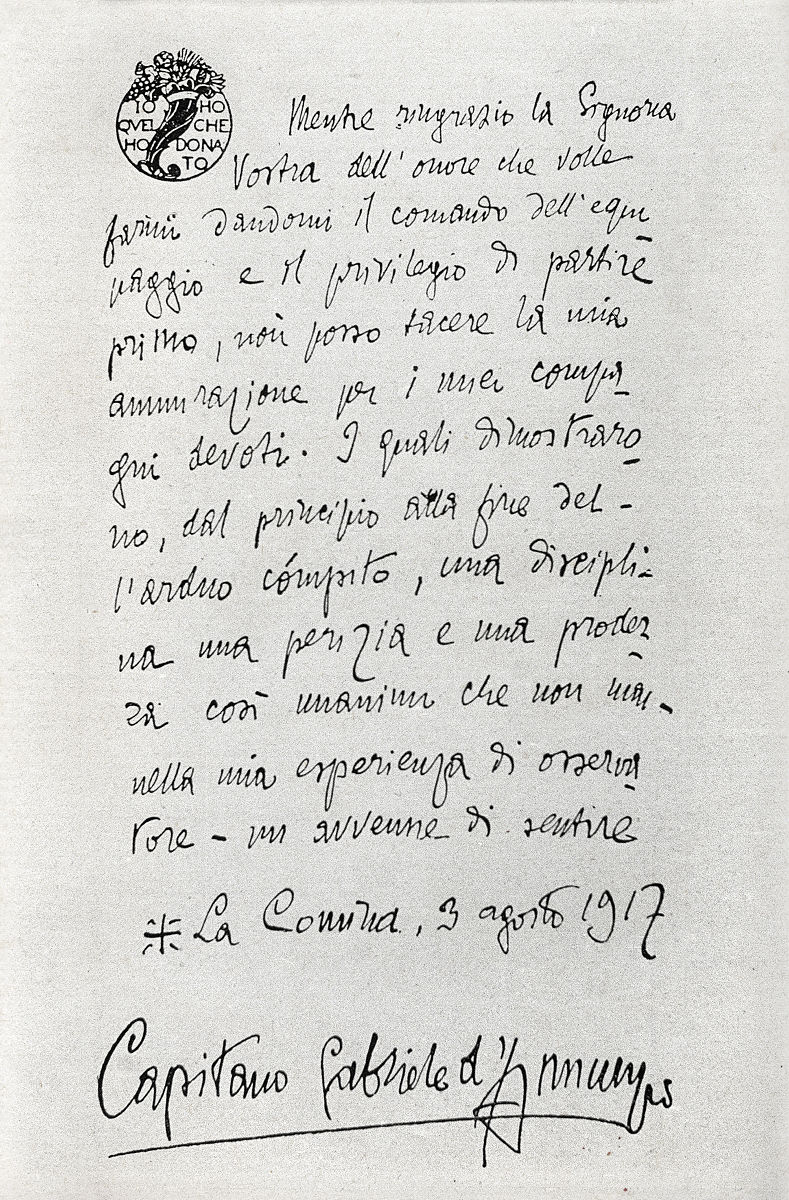 IO HO
QVEL CHE
HO DONA
TO
Mentre ringrazio la Signoria
Vostra dell'onore che volle
farmi dandomi il comando dell'equi
paggio e il privilegio di partire
primo, non posso tacere la mia
ammirazione per i miei compa
gni devoti. I quali dimostraro
no, dal principio alla fine del-
l'arduo cómpito, una discipli-
na una perizia e una prodez
za così unanimi che non mai-
nella mia esperienza di osserva
tore - mi avvenne di sentire
La Comina, 3 agosto 1917
Capitano Gabriele d'Annunzio